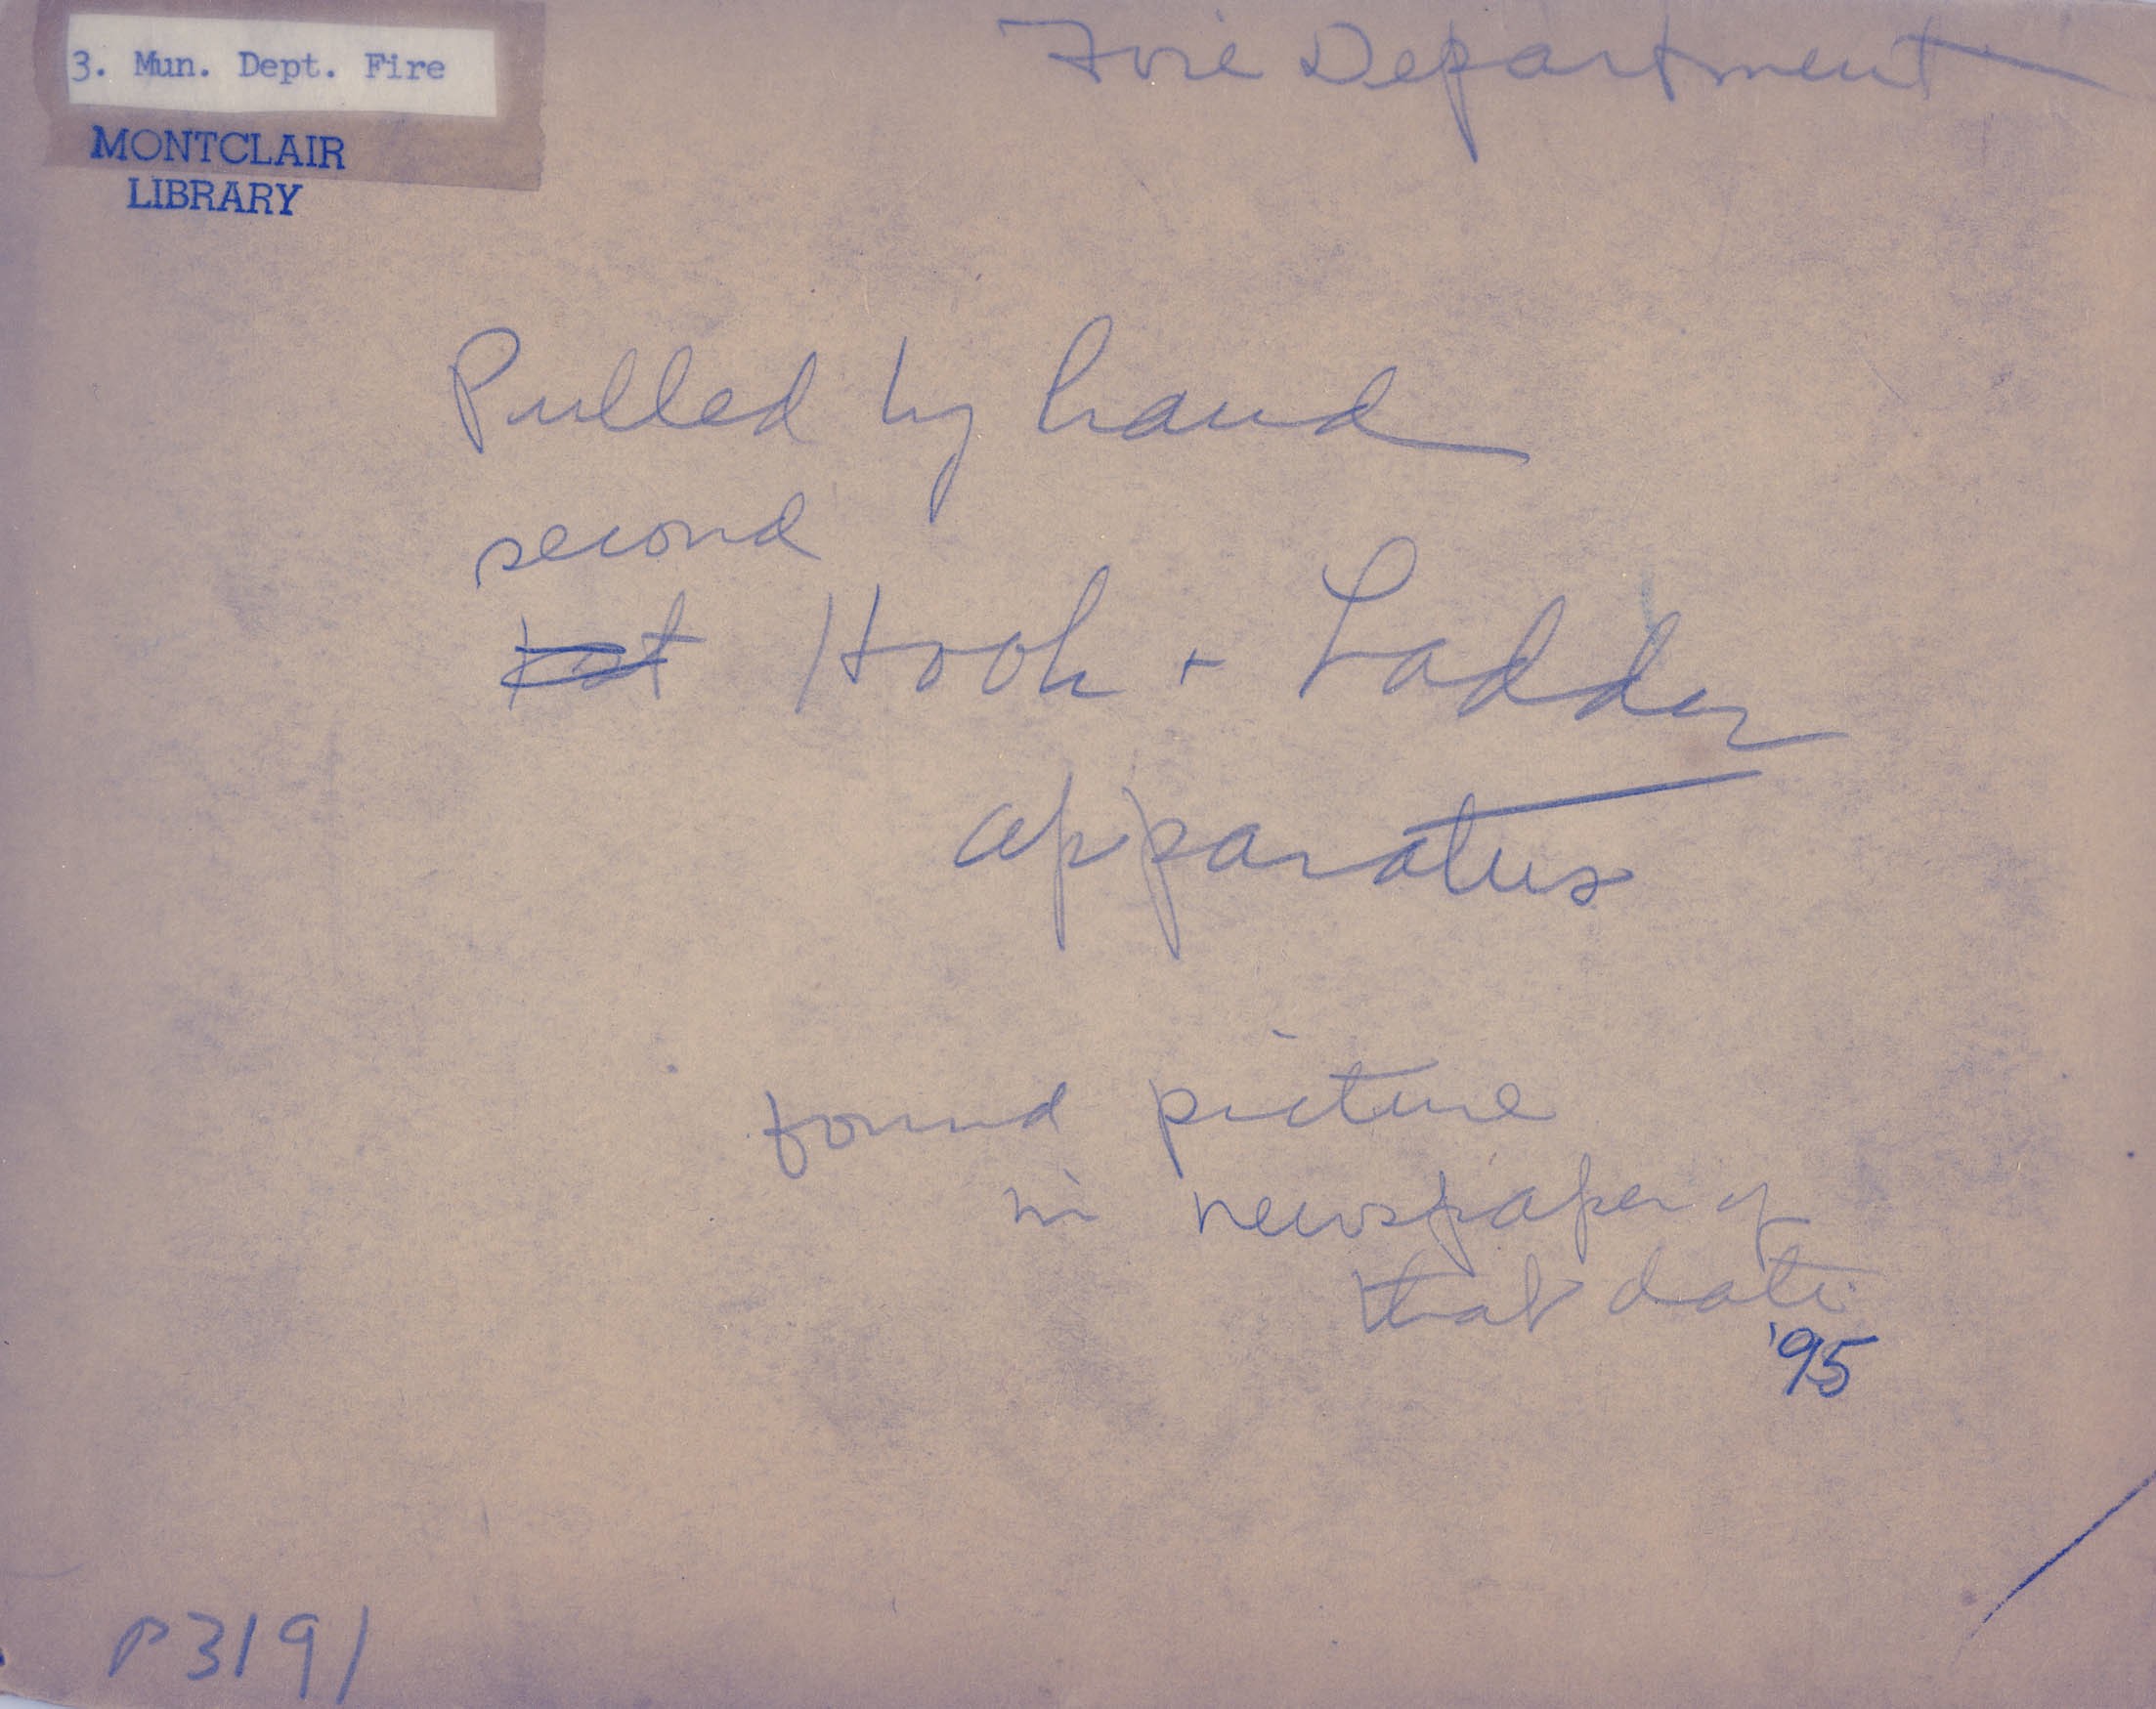 3. Mun. Dept. Fire
MONTCLAIR
LIBRARY
Fire Department
Pulled by hand
second
1st Hook + Ladder
apparatus
found picture
in newspaper of
that date
'95
P3191